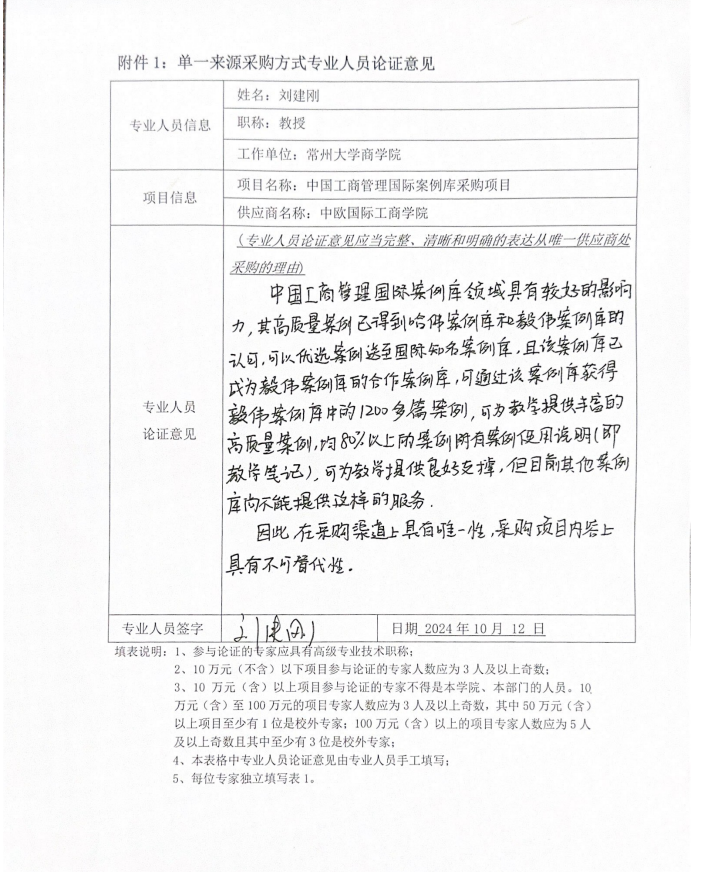 附件 1：单一来源采购方式专业人员论证意见
专业人员信息
姓名：刘建刚
职称：教授
工作单位：常州大学商学院
项目信息
项目名称：中国工商管理国际案例库采购项目
供应商名称：中欧国际工商学院
专业人员
论证意见
（专业人员论证意见应当完整、清晰和明确的表达从唯一供应商处
采购的理由）
中国工商管理国际案例库领域具有较好的影响
力，其高质量案例已得到哈佛案例库和毅伟案例库的
认可，可以优选案例送至国际知名案例库，且该案例库已
成为毅伟案例库的合作案例库，可通过该案例库获得
毅伟案例库中的1200多篇案例，可为教学提供丰富的
高质量案例，均80%以上的案例附有案例使用说明（即
教学笔记），可为教学提供良好支撑，但目前其他案例
库尚不能提供这样的服务.
因此，在采购渠道上具有唯一性，采购项目内容上
具有不可替代性。
专业人员签字
刘建刚
日期 2024 年 10 月 12 日
填表说明：1、参与论证的专家应具有高级专业技术职称；
2、10 万元（不含）以下项目参与论证的专家人数应为 3 人及以上奇数；
3、10 万元（含）以上项目参与论证的专家不得是本学院、本部门的人员。10
万元（含）至 100 万元的项目专家人数应为 3 人及以上奇数，其中 50 万元（含）
以上项目至少有 1 位是校外专家；100 万元（含）以上的项目专家人数应为 5 人
及以上奇数且其中至少有 3 位是校外专家；
4、本表格中专业人员论证意见由专业人员手工填写；
5、每位专家独立填写表 1。